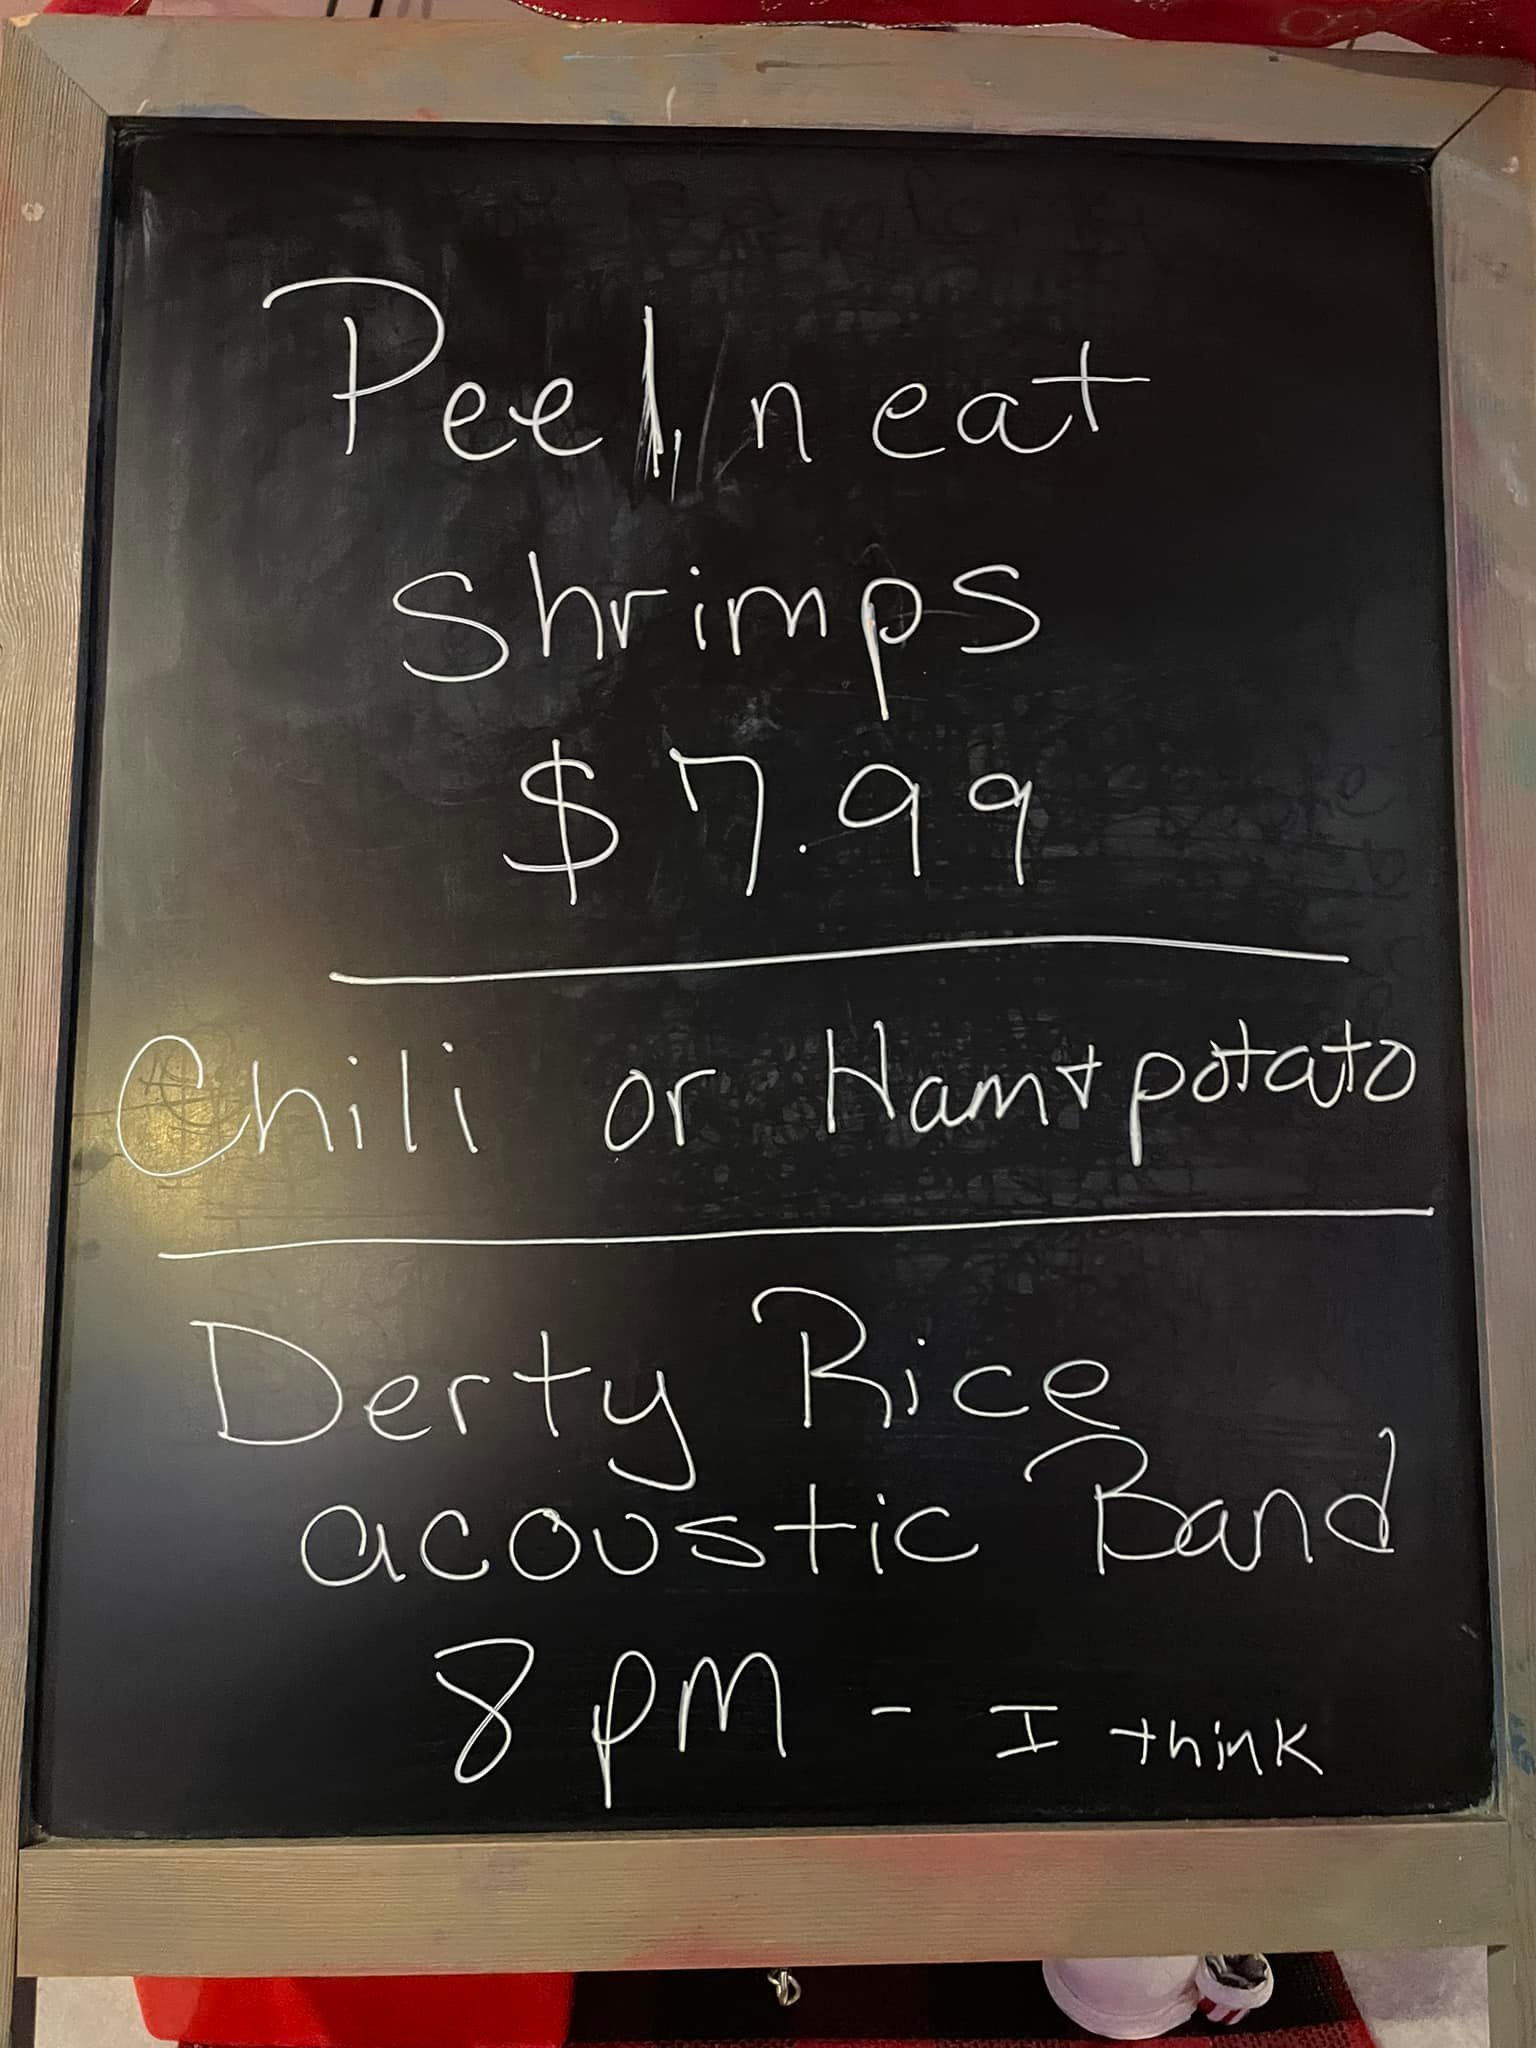 Peel, n eat
Shrimps
$7.99
Chili or Ham + potato
Derty Rice
acoustic Band
8 pm - I think